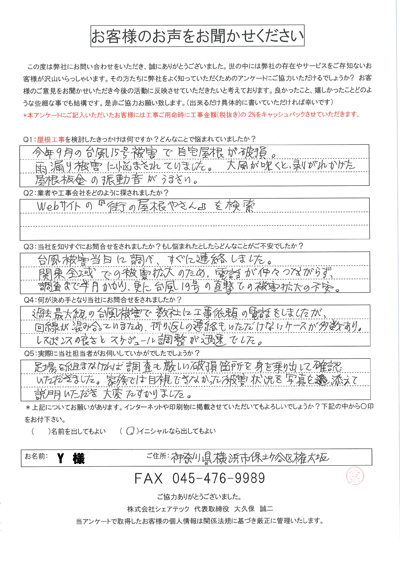 お客様のお声をお聞かせください
この度は弊社にお問い合わせをいただき、誠にありがとうございました。世の中には弊社の存在やサービスをご存知ないお
客様が沢山いらっしゃいます。その方たちに弊社をよく知っていただくためのアンケートにご協力いただけるでしょうか？ お客
様のご意見をお聞かせいただき今後の活動に反映させていただきたいと考えております。良かったこと、嬉しかったことどのよ
うな些細な事でも結構です。是非ご協力お願い致します。（出来るだけ具体的に書いていただければ幸いです）
*本アンケートにご記入いただいたお客様には工事ご用命時に工事金額(税抜き)の 2%をキャッシュバックさせていただきます。
Q1:屋根工事を検討したきっかけは何ですか？どんなことで悩まれていましたか？
今年9月の台風15号被害で自宅屋根が破損。
雨漏り被害に悩まされていました。大風が吹くと、剥がれかかた
屋根板金の振動音がうるさい。
Q2:業者や工事会社をどのように探されましたか？
Webサイトの『街の屋根やさん』を検索
Q3:当社を知りすぐにお問合せをされましたか？もし悩まれたとしたらどんなことがご不安でしたか？
台風被害当日に調べ、すぐに連絡しました。
関東全域での被害拡大のため、電話が仲々つながらず、
調査まで半月かかり、更に台風19号の直撃での被害拡大が不安。
Q4:何が決め手となり当社にお問合せをされましたか？
過去最大級の台風被害で数社に工事依頼の電話をしましたが、
回線が混み合っているため、折り返しの連絡もいただけないケースが多数あり。
レスポンスの良さとスケジュール調整が迅速でした。
Q5:実際に当社担当者がお伺いしていかがでしたでしょうか？
足場を組まなければ調査も厳しい破損箇所を身を乗り出して確認
いただきました。家族では目視できなかった被害状況を写真を添えて
説明いただき大変たすかりました。
*上記についてお願いがあります。インターネットや印刷物に掲載させていただいてもよろしいでしょうか？下記の中から○印
をお付下さい。
（　）名前を出してもよい （○）イニシャルなら出してもよい
お名前: Y 様 ご住所: 神奈川県横浜市保土ヶ谷区権太坂
FAX 045-476-9989
ご協力ありがとうございました。
株式会社シェアテック 代表取締役 大久保 誠二
当アンケートで取得したお客様の個人情報は関係法規に基づき厳正に管理いたします。